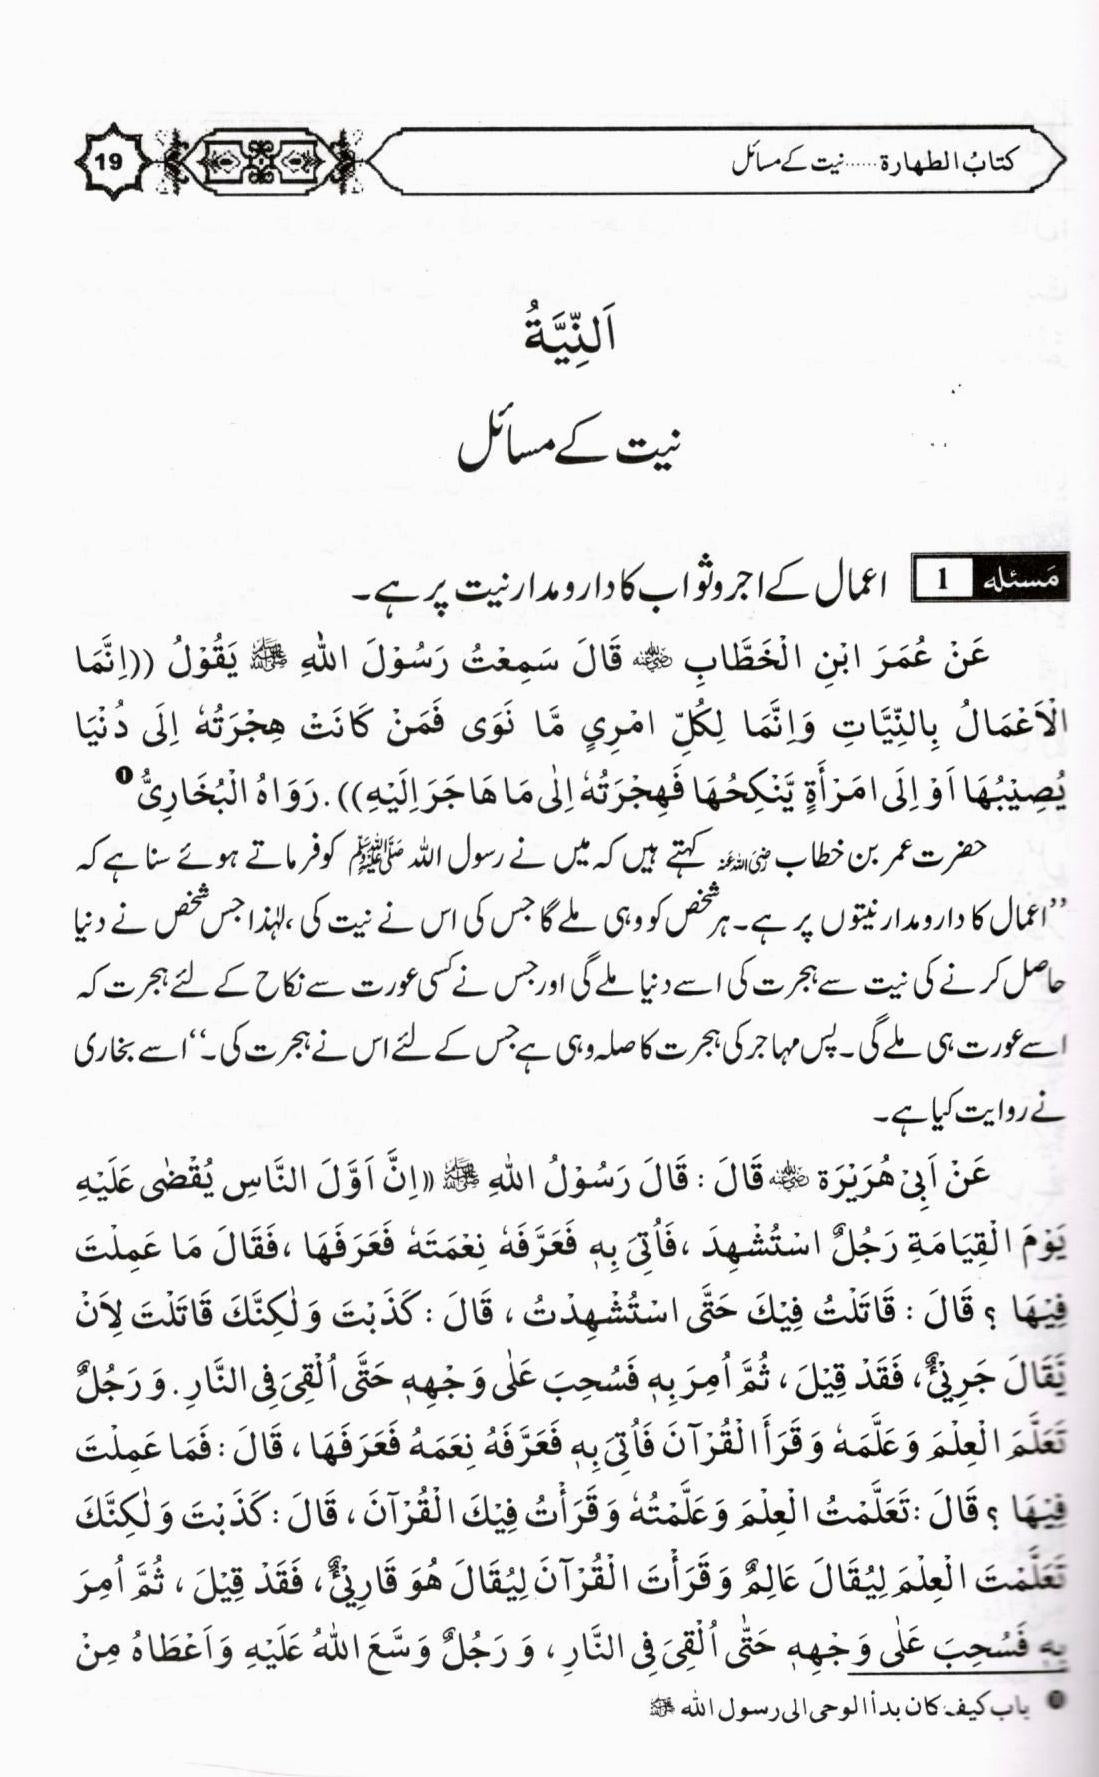 کتابُ الطهارة......نیت کے مسائل
19
اَلنِّیَّةُ
نیت کے مسائل
مَسئله 1 اعمال کے اجر و ثواب کا دار و مدار نیت پر ہے۔
عَنْ عُمَرَ ابْنِ الْخَطَّابِ رضی اللہ عنہ قَالَ سَمِعْتُ رَسُوْلَ اللهِ ﷺ یَقُوْلُ ((اِنَّمَا
الْاَعْمَالُ بِالنِّیَّاتِ وَاِنَّمَا لِکُلِّ امْرِیٍ مَّا نَوَی فَمَنْ کَانَتْ هِجْرَتُهٗ اِلَی دُنْیَا
یُصِیْبُهَا اَوْ اِلَی امْرَأَةٍ یَّنْکِحُهَا فَهِجْرَتُهٗ اِلٰی مَا هَاجَرَ اِلَیْهِ)). رَوَاهُ الْبُخَارِیُّ ❶
حضرت عمر بن خطاب رضی اللہ عنہ کہتے ہیں کہ میں نے رسول اللہ ﷺ کو فرماتے ہوئے سنا ہے کہ
’’اعمال کا دار و مدار نیتوں پر ہے۔ ہر شخص کو وہی ملے گا جس کی اس نے نیت کی، لہٰذا جس شخص نے دنیا
حاصل کرنے کی نیت سے ہجرت کی اسے دنیا ملے گی اور جس نے کسی عورت سے نکاح کے لئے ہجرت کہ
اسے عورت ہی ملے گی۔ پس مہاجر کی ہجرت کا صلہ وہی ہے جس کے لئے اس نے ہجرت کی۔‘‘ اسے بخاری
نے روایت کیا ہے۔
عَنْ اَبِیْ هُرَیْرَة رضی اللہ عنہ قَالَ : قَالَ رَسُوْلُ اللهِ ﷺ ((اِنَّ اَوَّلَ النَّاسِ یُقْضٰی عَلَیْهِ
یَوْمَ الْقِیَامَةِ رَجُلٌ اسْتُشْهِدَ ، فَاُتِیَ بِهٖ فَعَرَّفَهٗ نِعْمَتَهٗ فَعَرَفَهَا ، فَقَالَ مَا عَمِلْتَ
فِیْهَا ؟ قَالَ : قَاتَلْتُ فِیْكَ حَتَّی اسْتُشْهِدْتُ ، قَالَ : کَذَبْتَ وَلٰکِنَّكَ قَاتَلْتَ لِاَنْ
یَّقَالَ جَرِیْئٌ، فَقَدْ قِیْلَ ، ثُمَّ اُمِرَ بِهٖ فَسُحِبَ عَلٰی وَجْهِهٖ حَتَّی اُلْقِیَ فِی النَّارِ . وَ رَجُلٌ
تَعَلَّمَ الْعِلْمَ وَ عَلَّمَهٗ وَ قَرَأَ الْقُرْآنَ فَاُتِیَ بِهٖ فَعَرَّفَهٗ نِعَمَهُ فَعَرَفَهَا ، قَالَ : فَمَا عَمِلْتَ
فِیْهَا ؟ قَالَ : تَعَلَّمْتُ الْعِلْمَ وَعَلَّمْتُهٗ وَقَرَأْتُ فِیْكَ الْقُرْآنَ ، قَالَ : کَذَبْتَ وَلٰکِنَّكَ
تَعَلَّمْتَ الْعِلْمَ لِیُقَالَ عَالِمٌ وَ قَرَأْتَ الْقُرْآنَ لِیُقَالَ هُوَ قَارِیْئٌ، فَقَدْ قِیْلَ ، ثُمَّ اُمِرَ
بِهٖ فَسُحِبَ عَلٰی وَجْهِهٖ حَتّٰی اُلْقِیَ فِی النَّارِ ، وَ رَجُلٌ وَسَّعَ اللهُ عَلَیْهِ وَاَعْطَاهُ مِنْ
❶ باب کیف کان بدأ الوحی الی رسول اللہ ﷺ